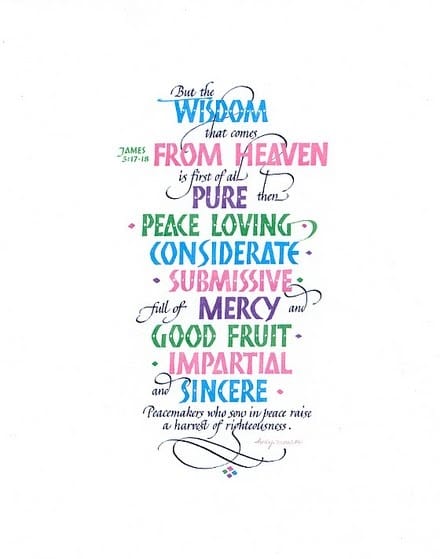 But the
WISDOM
that comes
JAMES
3:17-18
FROM HEAVEN
is first of all
PURE then
PEACE LOVING
CONSIDERATE
SUBMISSIVE
full of MERCY and
GOOD FRUIT
IMPARTIAL
and SINCERE
Peacemakers who sow in peace raise
a harvest of righteousness.